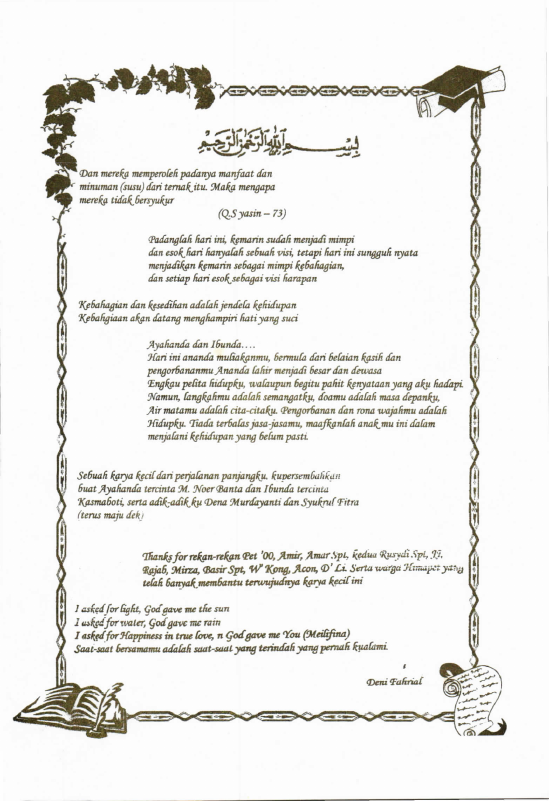 بِسْمِ اللهِ الرَّحْمٰنِ الرَّحِيْمِ
Dan mereka memperoleh padanya manfaat dan
minuman (susu) dari ternak itu. Maka mengapa
mereka tidak bersyukur
(Q.S yasin – 73)
Padanglah hari ini, kemarin sudah menjadi mimpi
dan esok hari hanyalah sebuah visi, tetapi hari ini sungguh nyata
menjadikan kemarin sebagai mimpi kebahagian,
dan setiap hari esok sebagai visi harapan
Kebahagian dan kesedihan adalah jendela kehidupan
Kebahgiaan akan datang menghampiri hati yang suci
Ayahanda dan Ibunda....
Hari ini ananda muliakanmu, bermula dari belaian kasih dan
pengorbananmu Ananda lahir menjadi besar dan dewasa
Engkau pelita hidupku, walaupun begitu pahit kenyataan yang aku hadapi.
Namun, langkahmu adalah semangatku, doamu adalah masa depanku,
Air matamu adalah cita-citaku. Pengorbanan dan rona wajahmu adalah
Hidupku. Tiada terbalas jasa-jasamu, maafkanlah anak mu ini dalam
menjalani kehidupan yang belum pasti.
Sebuah karya kecil dari perjalanan panjangku, kupersembahkan
buat Ayahanda tercinta M. Noer Banta dan Ibunda tercinta
Kasmaboti, serta adik-adik ku Dena Murdayanti dan Syukruf Fitra
(terus maju dek)
Thanks for rekan-rekan Pet '00, Amir, Amar Spt, kedua Rusydi Spt, JJ,
Rajab, Mirza, Basir Spt, W' Kong, Acon, D' Li. Serta warga Himapet yang
telah banyak membantu terwujudnya karya kecil ini
I asked for light, God gave me the sun
I asked for water, God gave me rain
I asked for Happiness in true love, n God gave me You (Meilifina)
Saat-saat bersamamu adalah saat-saat yang terindah yang pernah kualami.
Deni Fahrial